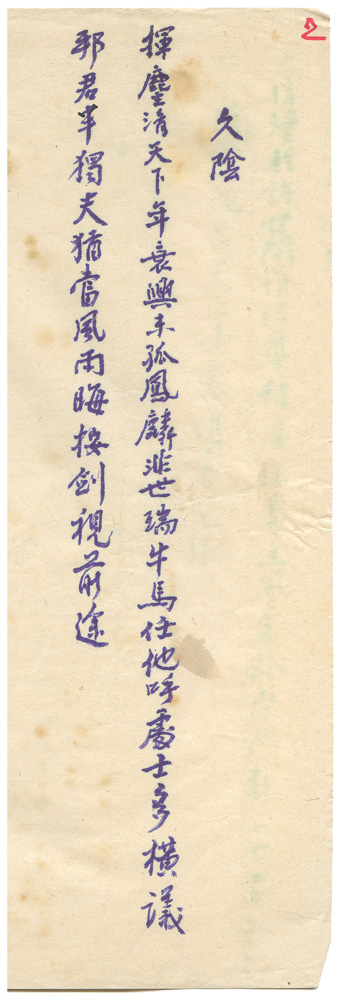 2
久陰
揮麈清天下年衰興未孤鳳麟非世瑞牛馬任他呼處士多橫議
邦君半獨夫猶當風雨晦按劍視前途